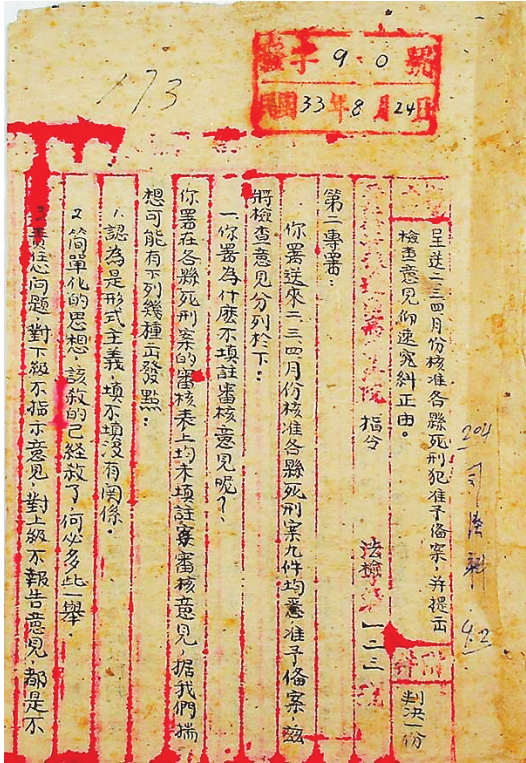 173
字90號
民國33年8月24日
呈送二三四月份核准各縣死刑犯准予備案，并提出
檢查意見仰速究糾正由。
附件
判決一份
指令
法檢
一二三
號
第二專署：
你署送來二、三、四月份核准各縣死刑案九件均悉准予備案 茲
將檢查意見分列於下：
一你署為什麽不填註審核意見呢？
你署在各縣死刑案的審核表上均未填註審核意見 据我們揣
想可能有下列幾種出發點：
1. 認為是形式主義，填不填沒有関係。
2 简單化的思想，該殺的已経殺了，何必多此一舉，
3 責任心問題，對下級不指示意見，對上級不報告意見，都是不
204
司法科